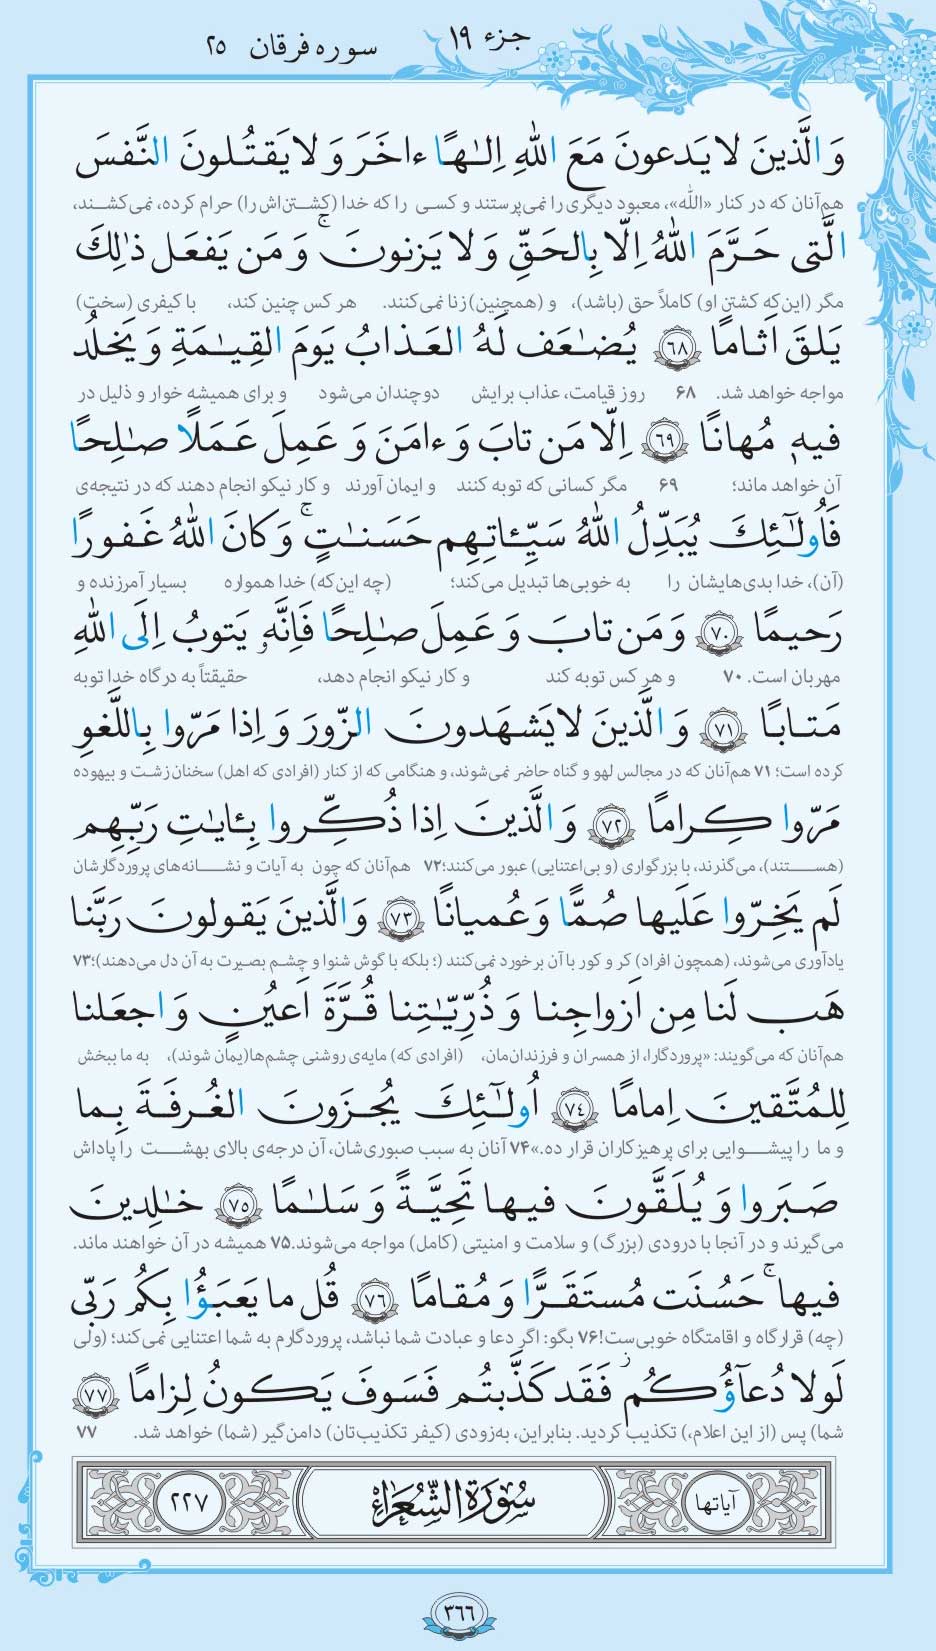 جزء ۱۹
سوره فرقان ۲۵
وَالَّذينَ لا يَدعونَ مَعَ اللهِ اِلـٰهًا ءاخَرَ وَ لا يَقتُلونَ النَّفسَ
هم‌آنان که در کنار «الله»، معبود دیگری را نمی‌پرستند و کسی را که خدا (کشتن‌اش را) حرام کرده، نمی‌کشند،
الَّتى حَرَّمَ اللهُ اِلّا بِالحَقِّ وَ لا يَزنونَ ۚ وَ مَن يَفعَل ذٰلِكَ
مگر (این‌که کشتن او) کاملاً حق (باشد)، و (همچنین) زنا نمی‌کنند. هر کس چنین کند، با کیفری (سخت)
يَلقَ اَثامًا ﴿۶۸﴾ يُضـٰعَف لَهُ العَذابُ يَومَ القِيـٰمَةِ وَ يَخلُد
مواجه خواهد شد. ۶۸ روز قیامت، عذاب برایش دوچندان می‌شود و برای همیشه خوار و ذلیل در
فيهٖ مُهانًا ﴿۶۹﴾ اِلّا مَن تابَ وَ ءامَنَ وَ عَمِلَ عَمَلًا صـٰلِحًا
آن خواهد ماند؛ ۶۹ مگر کسانی که توبه کنند و ایمان آورند و کار نیکو انجام دهند که در نتیجه‌ی
فَاُولـٰۤئِكَ يُبَدِّلُ اللهُ سَيِّـٔاتِهِم حَسَنـٰتٍ ۚ وَ كانَ اللهُ غَفورًا
(آن)، خدا بدی‌هایشان را به خوبی‌ها تبدیل می‌کند؛ (چه این‌که) خدا همواره بسیار آمرزنده و
رَحيمًا ﴿۷۰﴾ وَ مَن تابَ وَ عَمِلَ صـٰلِحًا فَاِنَّهٗ يَتوبُ اِلَى اللهِ
مهربان است. ۷۰ و هر کس توبه کند و کار نیکو انجام دهد، حقیقتاً به درگاه خدا توبه
مَتابًا ﴿۷۱﴾ وَ الَّذينَ لا يَشهَدونَ الزّورَ وَ اِذا مَرّوا بِاللَّغوِ
کرده است؛ ۷۱ هم‌آنان که در مجالس لهو و گناه حاضر نمی‌شوند، و هنگامی که از کنار (افرادی که اهل) سخنان زشت و بیهوده
مَرّوا كِرامًا ﴿۷۲﴾ وَ الَّذينَ اِذا ذُكِّروا بِـٔايـٰتِ رَبِّهِم
(هستند)، می‌گذرند، با بزرگواری (و بی‌اعتنایی) عبور می‌کنند؛ ۷۲ هم‌آنان که چون به آیات و نشانه‌های پروردگارشان
لَم يَخِرّوا عَلَيها صُمًّا وَ عُميانًا ﴿۷۳﴾ وَالَّذينَ يَقولونَ رَبَّنا
یادآوری می‌شوند، (همچون افراد) کر و کور با آن برخورد نمی‌کنند (؛ بلکه با گوش شنوا و چشم بصیرت به آن دل می‌دهند)؛ ۷۳
هَب لَنا مِن اَزواجِنا وَ ذُرِّيّـٰتِنا قُرَّةَ اَعيُنٍ وَ اجعَلنا
هم‌آنان که می‌گویند: «پروردگارا، از همسران و فرزندان‌مان، (افرادی که) مایه‌ی روشنی چشم‌ها(یمان شوند)، به ما ببخش
لِلمُتَّقينَ اِمامًا ﴿۷۴﴾ اُولـٰۤئِكَ يُجزَونَ الغُرفَةَ بِما
و ما را پیشوایی برای پرهیزکاران قرار ده.» ۷۴ آنان به سبب صبوری‌شان، آن درجه‌ی بالای بهشت را پاداش
صَبَروا وَ يُلَقَّونَ فيها تَحِيَّةً وَ سَلـٰمًا ﴿۷۵﴾ خـٰلِدينَ
می‌گیرند و در آنجا با درودی (بزرگ) و سلامت و امنیتی (کامل) مواجه می‌شوند. ۷۵ همیشه در آن خواهند ماند.
فيها ۚ حَسُنَت مُستَقَرًّا وَ مُقامًا ﴿۷۶﴾ قُل ما يَعبَؤُا بِكُم رَبّى
(چه) قرارگاه و اقامتگاه خوبی‌ست! ۷۶ بگو: اگر دعا و عبادت شما نباشد، پروردگارم به شما اعتنایی نمی‌کند؛ (ولی
لَولا دُعاۤؤُكُم ۖ فَقَد كَذَّبتُم فَسَوفَ يَكونُ لِزامًا ﴿۷۷﴾
شما) پس (از این اعلام)، تکذیب کردید. بنابراین، به‌زودی (کیفر تکذیب‌تان) دامن‌گیر (شما) خواهد شد. ۷۷
آیاتها سُورَةُ الشُّعَرَاءِ ۲۲۷
۳۶۶